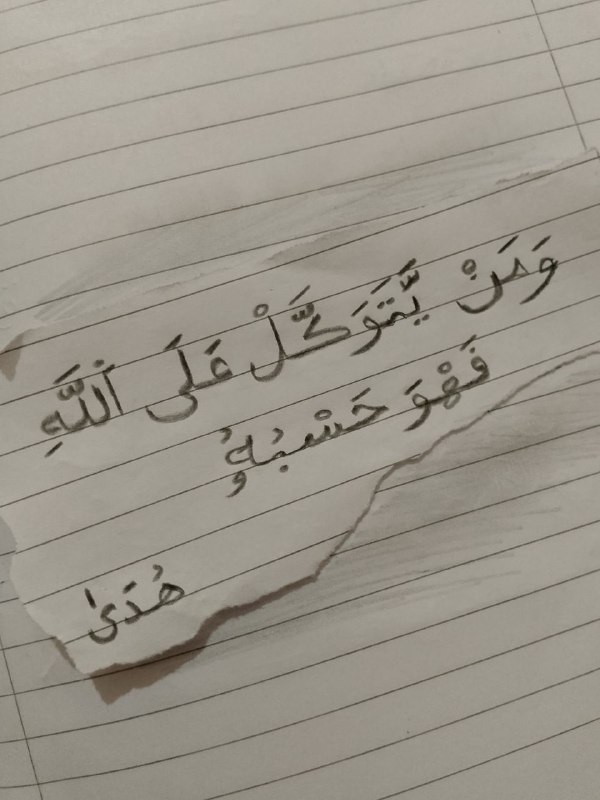 وَمَنْ يَّتَوَكَّلْ عَلَى ٱللَّهِ
فَهْوَ حَسْبُهُۥ
هُدَىٰ